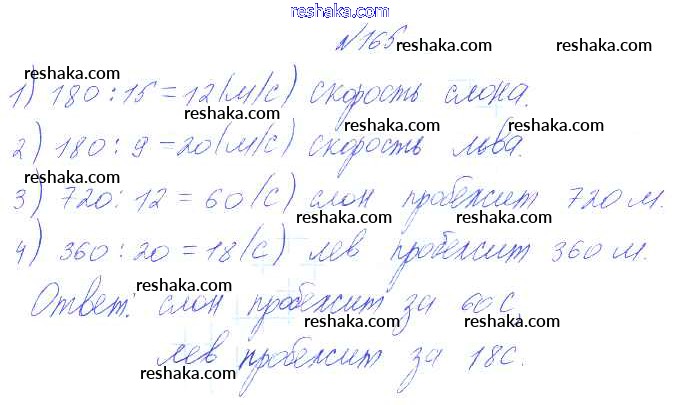 reshaka.com
№165
reshaka.com reshaka.com
reshaka.com
1) 180 : 15 = 12 (м/с) скорость слона.
reshaka.com reshaka.com reshaka.com
2) 180 : 9 = 20 (м/с) скорость льва.
reshaka.com reshaka.com
3) 720 : 12 = 60 (с) слон пробежит 720 м.
reshaka.com reshaka.com
4) 360 : 20 = 18 (с) лев пробежит 360 м.
reshaka.com reshaka.com
Ответ: слон пробежит за 60 с,
reshaka.com reshaka.com
лев пробежит за 18 с.
reshaka.com reshaka.com